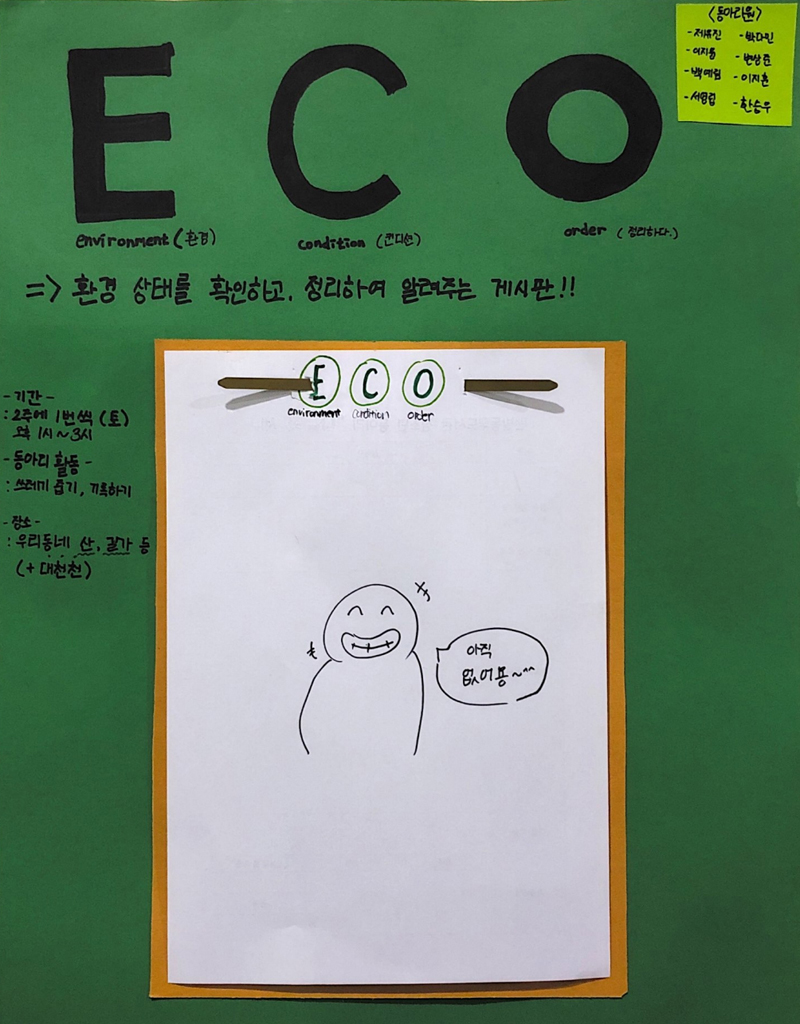 E C O
environment (환경)
condition (컨디션)
order (정리하다.)
〈동아리원〉
- 제유진 - 박다인
- 이지용 - 변상준
- 백예림 - 이지훈
- 서영림 - 한승우
=> 환경 상태를 확인하고, 정리하여 알려주는 게시판!!
- 기간 -
: 2주에 1번씩 (토)
오후 1시~3시
- 동아리 활동 -
: 쓰레기 줍기, 기록하기
- 장소 -
: 우리동네 산, 길가 등
(+ 대천천)
E C O
environment (condition) order
아직
없어용~^^